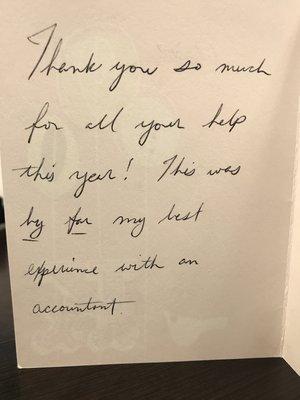 Thank you so much
for all your help
this year! This was
by far my best
experience with an
accountant.